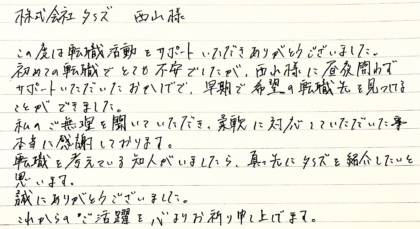 株式会社タスズ 西山様
この度は転職活動をサポートいただきありがとうございました。
初めての転職でとても不安でしたが、西山様に昼夜問わず
サポートいただいたおかげで、早期で希望の転職先を見つける
ことができました。
私のご無理を聞いていただき、柔軟に対応していただいた事
本当に感謝しております。
転職を考えている知人がいましたら、真っ先にタスズを紹介したいと
思います。
誠にありがとうございました。
これからのご活躍を心よりお祈り申し上げます。